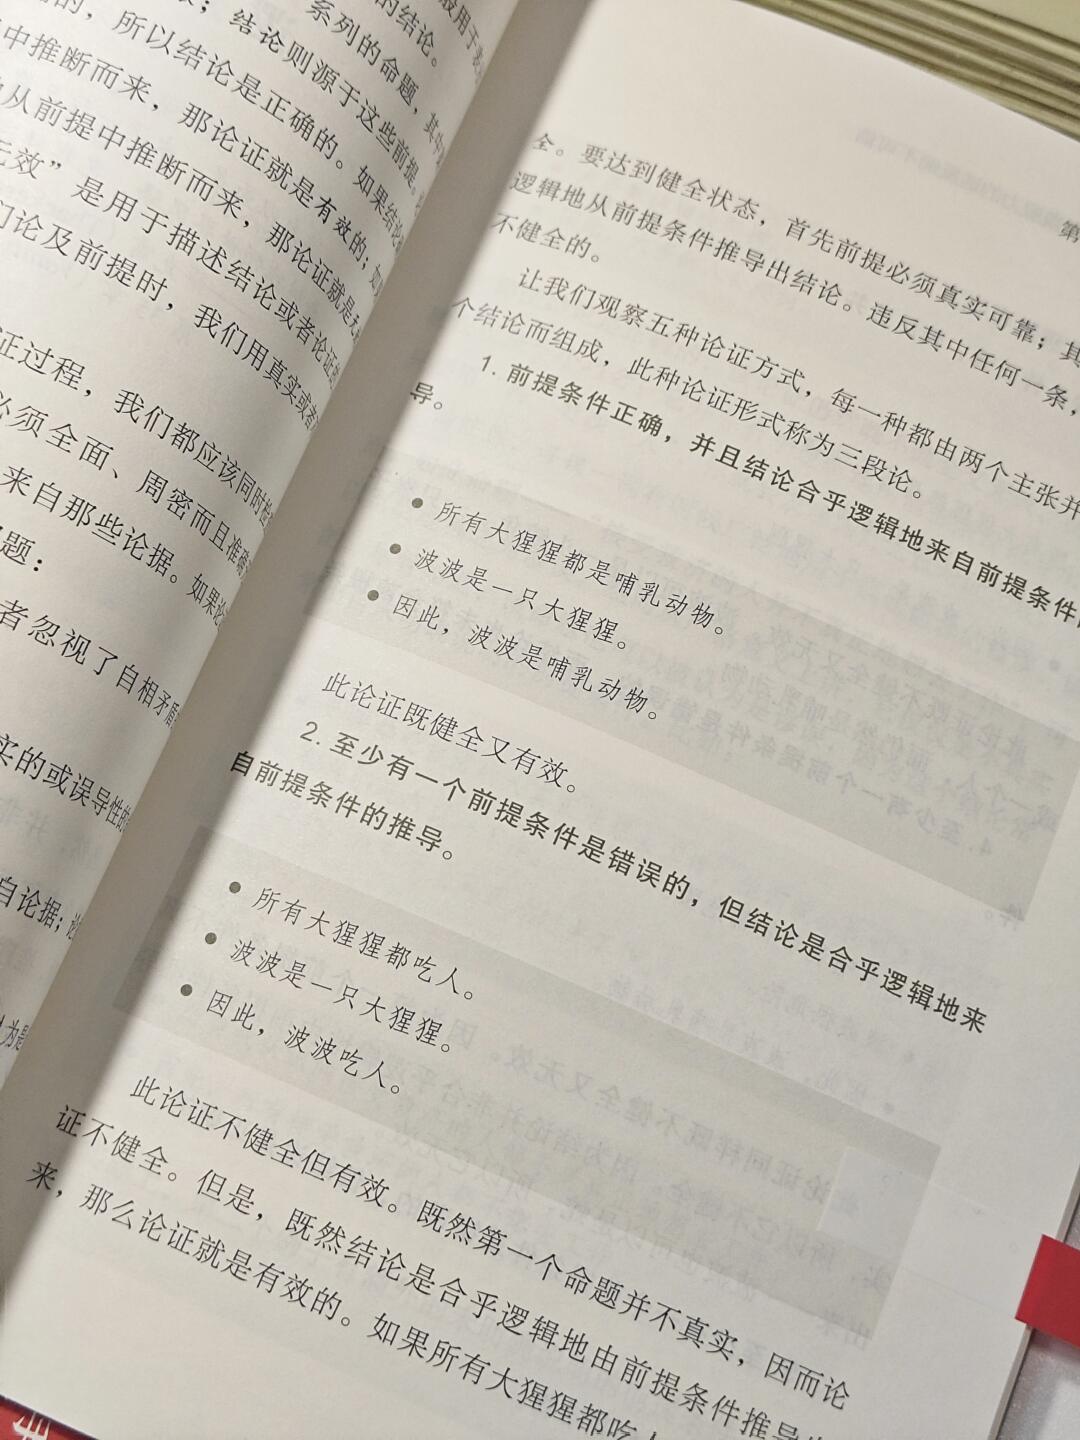 的结论。
系列的命题，其中
；结论则源于这些前提。
的，所以结论是正确的。如果结论
中推断而来，那论证就是有效的；如
从前提中推断而来，那论证就是无
无效”是用于描述结论或者论证的
们论及前提时，我们用真实或者
证过程，我们都应该同时
必须全面、周密而且准确
来自那些论据。如果论
题：
者忽视了自相矛盾
实的或误导性的
自论据；论
人为是
第
全。要达到健全状态，首先前提必须真实可靠；其
逻辑地从前提条件推导出结论。违反其中任何一条，
不健全的。
让我们观察五种论证方式，每一种都由两个主张并
个结论而组成，此种论证形式称为三段论。
1. 前提条件正确，并且结论合乎逻辑地来自前提条件的
导。
● 所有大猩猩都是哺乳动物。
● 波波是一只大猩猩。
● 因此，波波是哺乳动物。
此论证既健全又有效。
2. 至少有一个前提条件是错误的，但结论是合乎逻辑地来
自前提条件的推导。
● 所有大猩猩都吃人。
● 波波是一只大猩猩。
● 因此，波波吃人。
此论证不健全但有效。既然第一个命题并不真实，因而论
证不健全。但是，既然结论是合乎逻辑地由前提条件推导
来，那么论证就是有效的。如果所有大猩猩都吃人